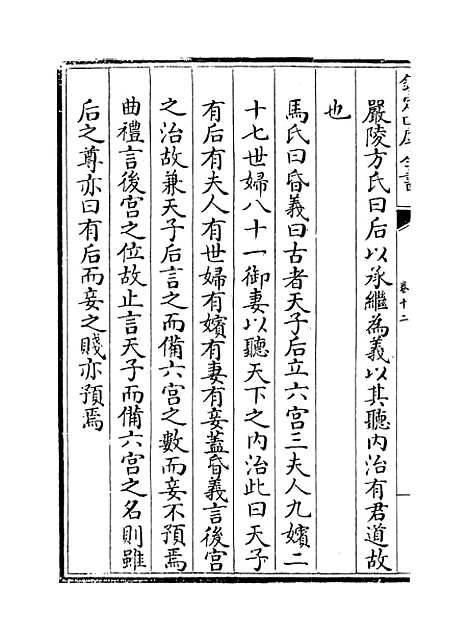 欽定四庫全書
卷十二
嚴陵方氏曰后以承繼為義以其聽内治有君道故
也
馬氏曰昏義曰古者天子后立六宫三夫人九嬪二
十七世婦八十一御妻以聽天下之内治此曰天子
有后有夫人有世婦有嬪有妻有妾蓋昏義言後宫
之治故兼天子后言之而備六宫之數而妾不預焉
曲禮言後宫之位故止言天子而備六宫之名則雖
后之尊亦曰有后而妾之賤亦預焉